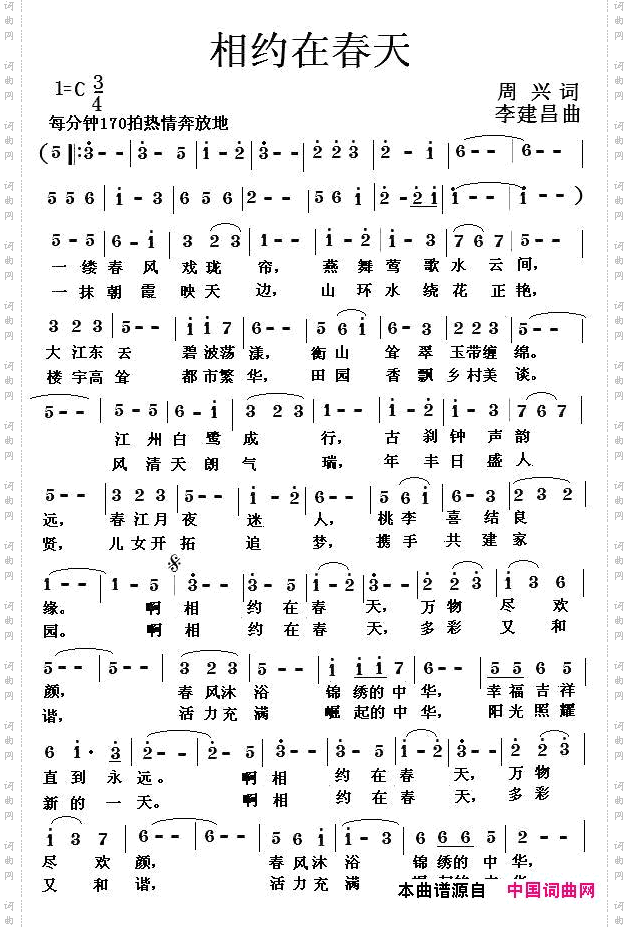 相约在春天
1=C 3/4
周兴词
每分钟170拍热情奔放地
李建昌曲
(5 ‖:3 - - 3 - - 1 - 2 3 - - 2 2 3 2 - 1 6 - - 6 - -
5 5 6 1 - 3 5 - 6 5 6 2 - - 5 5 5 1 2 - 2 1 1 - - 1 - - )
5 - 5 6 - 1 3 2 3 1 - - 2 - 2 1 - 3 7 6 7 5 - -
一缕春风戏珑帘，燕舞莺歌水云间，
一抹朝霞映天边，山环水绕花正艳，
3 2 3 5 - - 1 1 7 6 - - 5 6 1 6 - 3 2 2 3 5 - -
大江东云碧波荡漾，衡山耸翠玉带缠绵。
楼宇高耸都市繁华，田园香飘乡村美谈。
5 - - 5 - 5 6 - 1 3 2 3 1 - - 1 - 2 1 - 3 7 6 7
江州白鹭成行，古刹钟声韵
风清天朗气瑞，年丰日盛人
5 - - 3 2 3 5 - 5 1 - 2 6 - - 5 6 1 6 - 3 2 3 3
远，春江月夜迷人，桃李喜结良
贤，儿女开拓追梦，携手共建家
1 - - 1 - - 1 - 5 3 - - 3 - 5 1 - 2 3 - - 2 2 3 1 3 6
缘。啊相约在春天，万物尽欢
园。啊相约在春天，多彩又和
5 - - 5 - - 3 - 3 2 - 3 5 - - 1 1 1 7 6 - - 5 5 5 6
颜，春风沐浴锦绣的中华，幸福吉祥
谐，活力充满崛起的中华，阳光照耀
6 1· 3 2 - - 2 - - 3 - - 3 - 5 1 - 2 3 - - 2 2 3
直到永远。啊相约在春天，万物
新的一天。啊相约在春天，多彩
1 3 7 6 - - 6 - - 3 - 3 2 - 3 1 - - 6 6 6 5 3 - -
尽欢颜，春风沐浴锦绣的中华，
又和谐，活力充满
本曲谱源自 中国词曲网